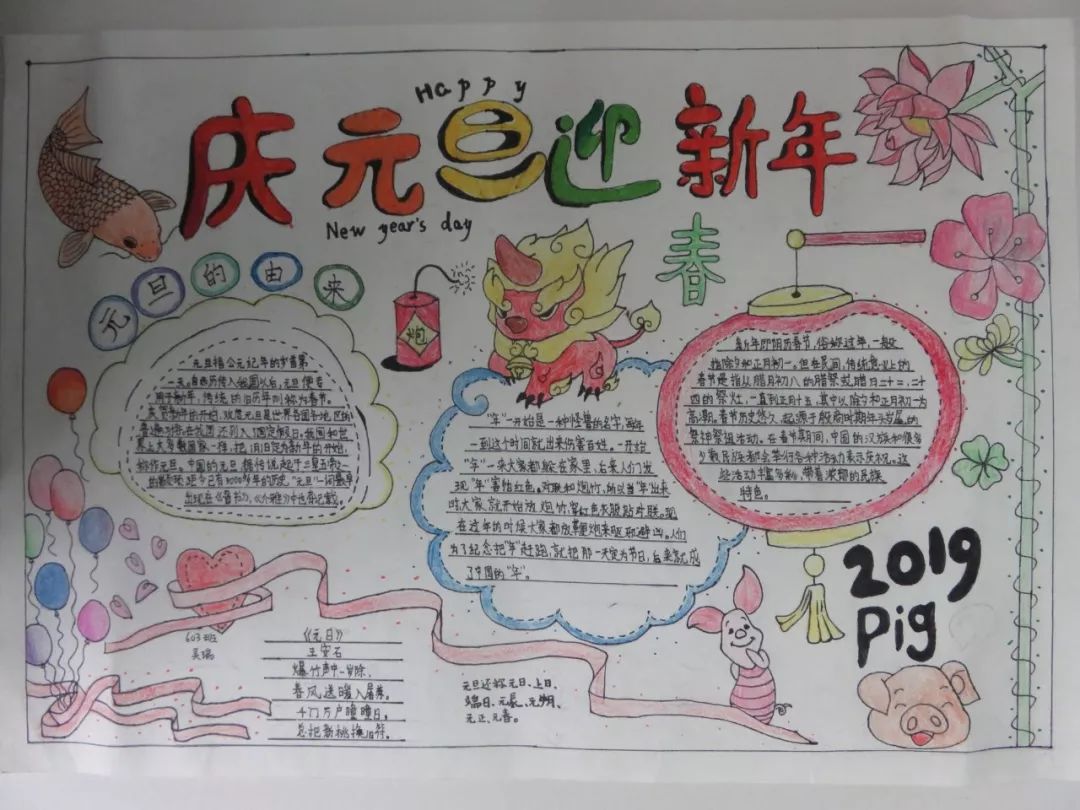 Happy
庆元旦迎新年
New year's day
春
元旦的由来
炮
元旦指公元纪年的岁首第
一天。自西历传入我国以后,元旦便专
用于新年,传统的旧历年则称为春节。
庆贺新年的开始,欢度元旦是世界各国各地区的
普遍习俗在我国还列入了国定假日,我国和世
界上大多数国家一样,把1月1日定为新年的开始,
称作元旦。中国的元旦,据传说起于三皇五帝之一
的颛顼,距今已有3000多年的历史。"元旦"一词最早
出现在《晋书》,《尔雅》中也有记载。
"年"一开始是一种怪兽的名字,每年
一到这个时间就出来伤害百姓。一开始
"年"一来大家都躲在家里,后来人们发
现"年"害怕红色、对联和炮竹,所以当"年"出来
时大家就开始放炮竹穿红色衣服贴对联。现
在过年的时候大家都放鞭炮来驱邪避凶。人们
为了纪念把"年"赶跑,就把那一天定为节日,后来就成
了中国的"年"。
新年即阳历春节,俗称过年,一般
指除夕和正月初一。但在民间,传统意义上的
春节是指从腊月初八的腊祭或腊月二十三、二十
四的祭灶,一直到正月十五,其中以除夕和正月初一为
高潮。春节历史悠久,起源于殷商时期年头岁尾的
祭神祭祖活动。在春节期间,中国的汉族和很多
少数民族都会举行各种活动表示庆祝。这
些活动丰富多彩,带着浓郁的民族
特色。
2019
Pig
603班
吴瑞
《元日》
王安石
爆竹声中一岁除,
春风送暖入屠苏。
千门万户曈曈日,
总把新桃换旧符。
元旦还称元日、上日、
端日、元辰、元朔、
元正、元春。